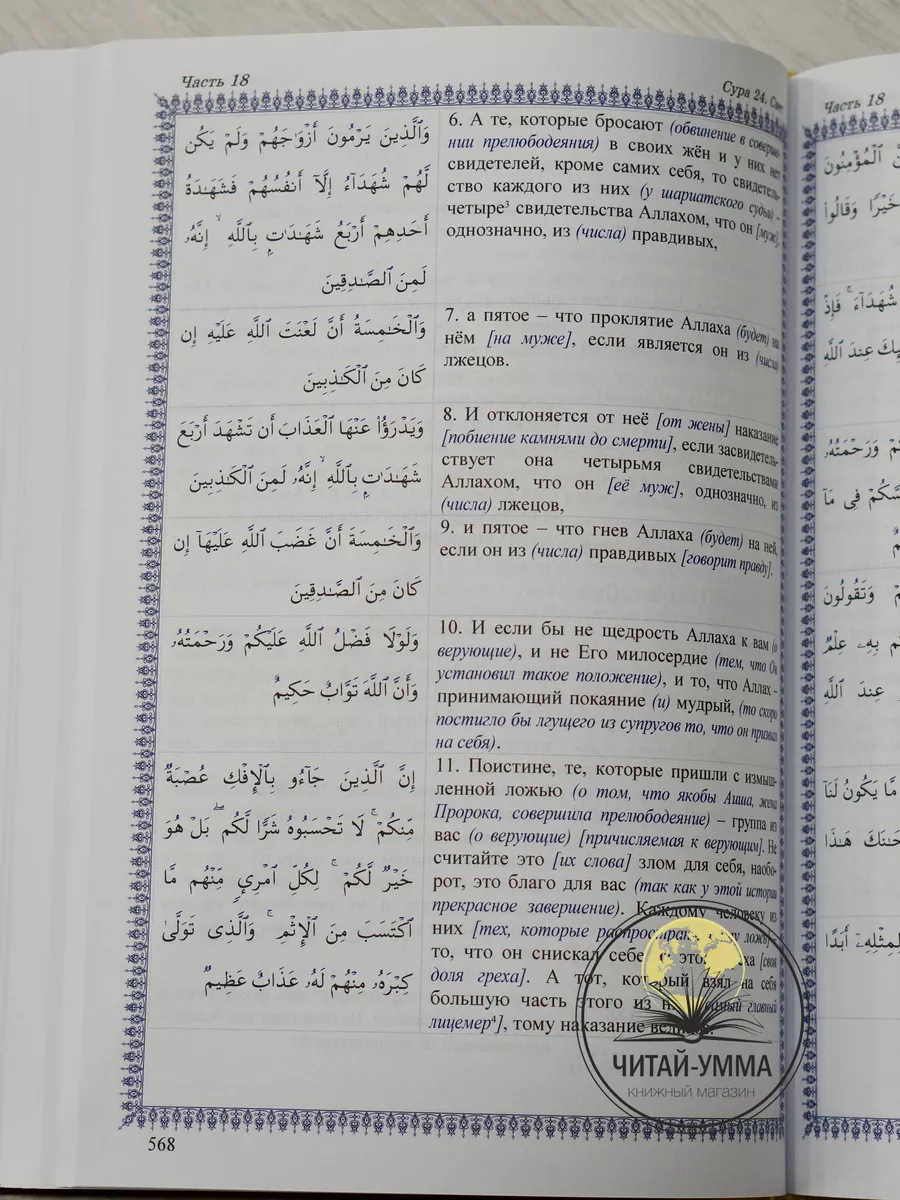 Часть 18
Сура 24.
وَٱلَّذِينَ يَرْمُونَ أَزْوَٰجَهُمْ وَلَمْ يَكُن
لَّهُمْ شُهَدَآءُ إِلَّآ أَنفُسُهُمْ فَشَهَٰدَةُ
أَحَدِهِمْ أَرْبَعُ شَهَٰدَٰتٍۭ بِٱللَّهِ ۙ إِنَّهُۥ
لَمِنَ ٱلصَّٰدِقِينَ
6. А те, которые бросают (обвинение в соверше-
нии прелюбодеяния) в своих жён и у них нет
свидетелей, кроме самих себя, то свидетель-
ство каждого из них (у шариатского судьи) –
четыре³ свидетельства Аллахом, что он [муж],
однозначно, из (числа) правдивых,
وَٱلْخَٰمِسَةُ أَنَّ لَعْنَتَ ٱللَّهِ عَلَيْهِ إِن
كَانَ مِنَ ٱلْكَٰذِبِينَ
7. а пятое – что проклятие Аллаха (будет) на
нём [на муже], если является он из (числа)
лжецов.
وَيَدْرَؤُا۟ عَنْهَا ٱلْعَذَابَ أَن تَشْهَدَ أَرْبَعَ
شَهَٰدَٰتٍۭ بِٱللَّهِ ۙ إِنَّهُۥ لَمِنَ ٱلْكَٰذِبِينَ
8. И отклоняется от неё [от жены] наказание
[побиение камнями до смерти], если засвидетель-
ствует она четырьмя свидетельствами
Аллахом, что он [её муж], однозначно, из
(числа) лжецов,
وَٱلْخَٰمِسَةَ أَنَّ غَضَبَ ٱللَّهِ عَلَيْهَآ إِن
كَانَ مِنَ ٱلصَّٰدِقِينَ
9. и пятое – что гнев Аллаха (будет) на ней,
если он из (числа) правдивых [говорит правду].
وَلَوْلَا فَضْلُ ٱللَّهِ عَلَيْكُمْ وَرَحْمَتُهُۥ
وَأَنَّ ٱللَّهَ تَوَّابٌ حَكِيمٌ
10. И если бы не щедрость Аллаха к вам (о
верующие), и не Его милосердие (тем, что Он
установил такое положение), и то, что Аллах –
принимающий покаяние (и) мудрый, (то скоро
постигло бы лгущего из супругов то, что он призвал
на себя).
إِنَّ ٱلَّذِينَ جَآءُو بِٱلْإِفْكِ عُصْبَةٌ
مِّنكُمْ ۚ لَا تَحْسَبُوهُ شَرًّا لَّكُم ۖ بَلْ هُوَ
خَيْرٌ لَّكُمْ ۚ لِكُلِّ ٱمْرِئٍ مِّنْهُم مَّا
ٱكْتَسَبَ مِنَ ٱلْإِثْمِ ۚ وَٱلَّذِى تَوَلَّىٰ
كِبْرَهُۥ مِنْهُمْ لَهُۥ عَذَابٌ عَظِيمٌ
11. Поистине, те, которые пришли с измыш-
ленной ложью (о том, что якобы Аиша, жена
Пророка, совершила прелюбодеяние) – группа из
вас (о верующие) [причисляемая к верующим]. Не
считайте это [их слова] злом для себя, наобо-
рот, это благо для вас (так как у этой истории
прекрасное завершение). Каждому человеку из
них [тех, которые ложь] –
то, что он снискал себе [своя
доля греха]. А тот, который взял на себя
большую часть этого из главный
лицемер⁴], тому наказание
568
ЧИТАЙ-УММА
КНИЖНЫЙ МАГАЗИН
Часть 18
ٱلْمُؤْمِنُونَ
خَيْرًا وَقَالُوا۟
شُهَدَآءَ ۚ فَإِذْ
عِندَ ٱللَّهِ
وَرَحْمَتُهُۥ
فِى مَآ
وَتَقُولُونَ
بِهِۦ عِلْمٌ
عِندَ ٱللَّهِ
مَّا يَكُونُ لَنَآ
هَٰذَا
لِمِثْلِهِۦٓ أَبَدًا